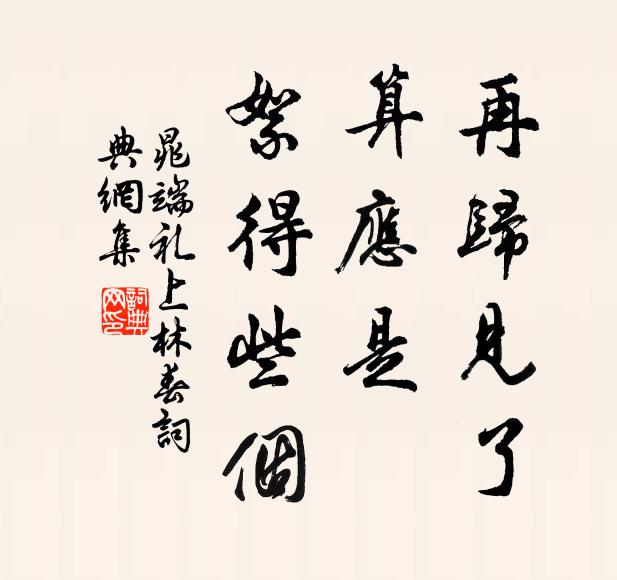 再歸見了
算應是
絮得些個
晁端礼上林春詞
典網集
詞典網印